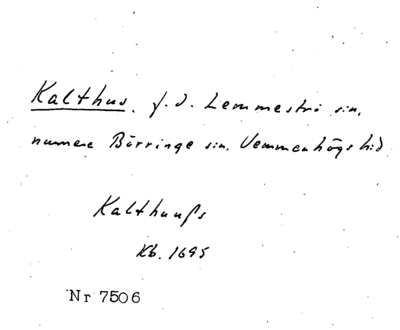 Kalthus. f.d. Lemmeströ sn,
numera Börringe sn. Vemmenhögs hd.
Kalthuußs
Kb. 1695
Nr 7506